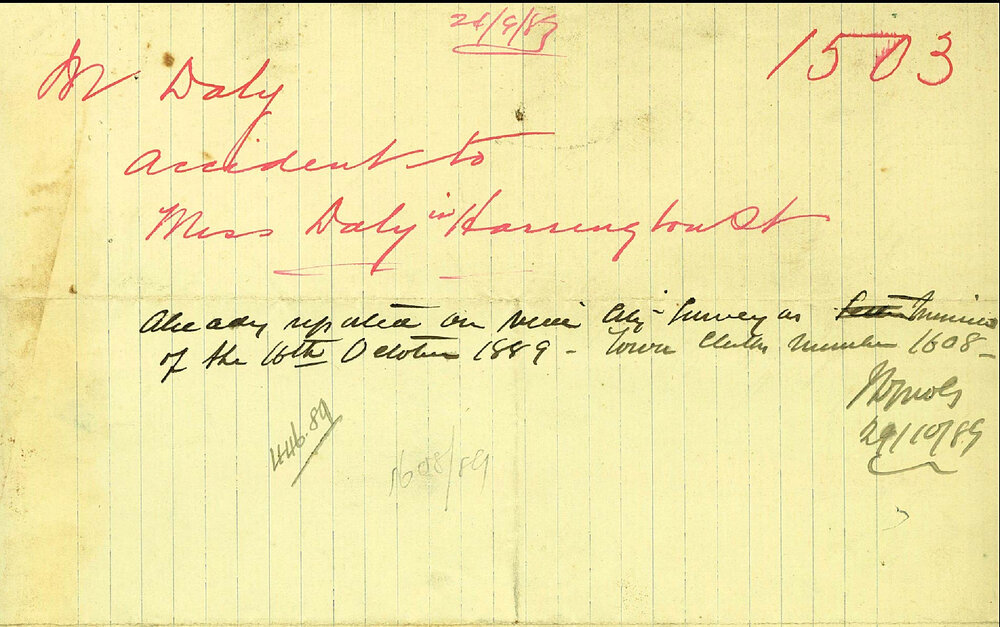 2x/9/89
1503
Mr Daly
Accident to
Miss Daly in Harrington St
Already reported on vide City Surveyors Minute
of the 16th October 1889 – Town Clerks Number 1608 –
29/10/89
446.89
1608/89